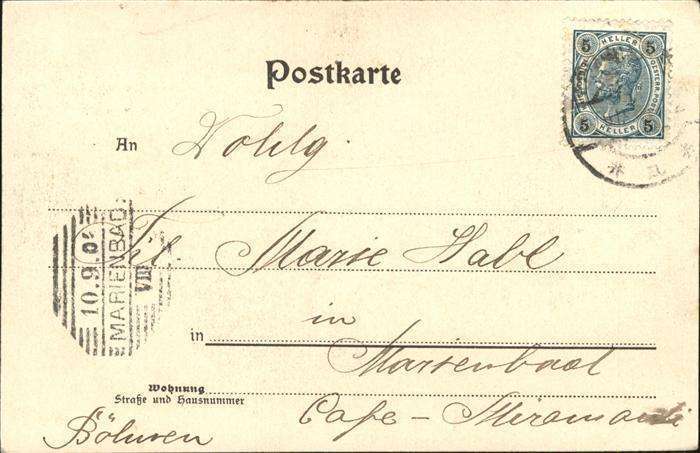 Postkarte
5 HELLER 5
5 HELLER 5
An Wohlg.
Frl Marie Habl
in
in Marienbad
Wohnung
Straße und Hausnummer
Cafe - Miramonti
Böhmen
10.9.0
MARIENBAD
VIII